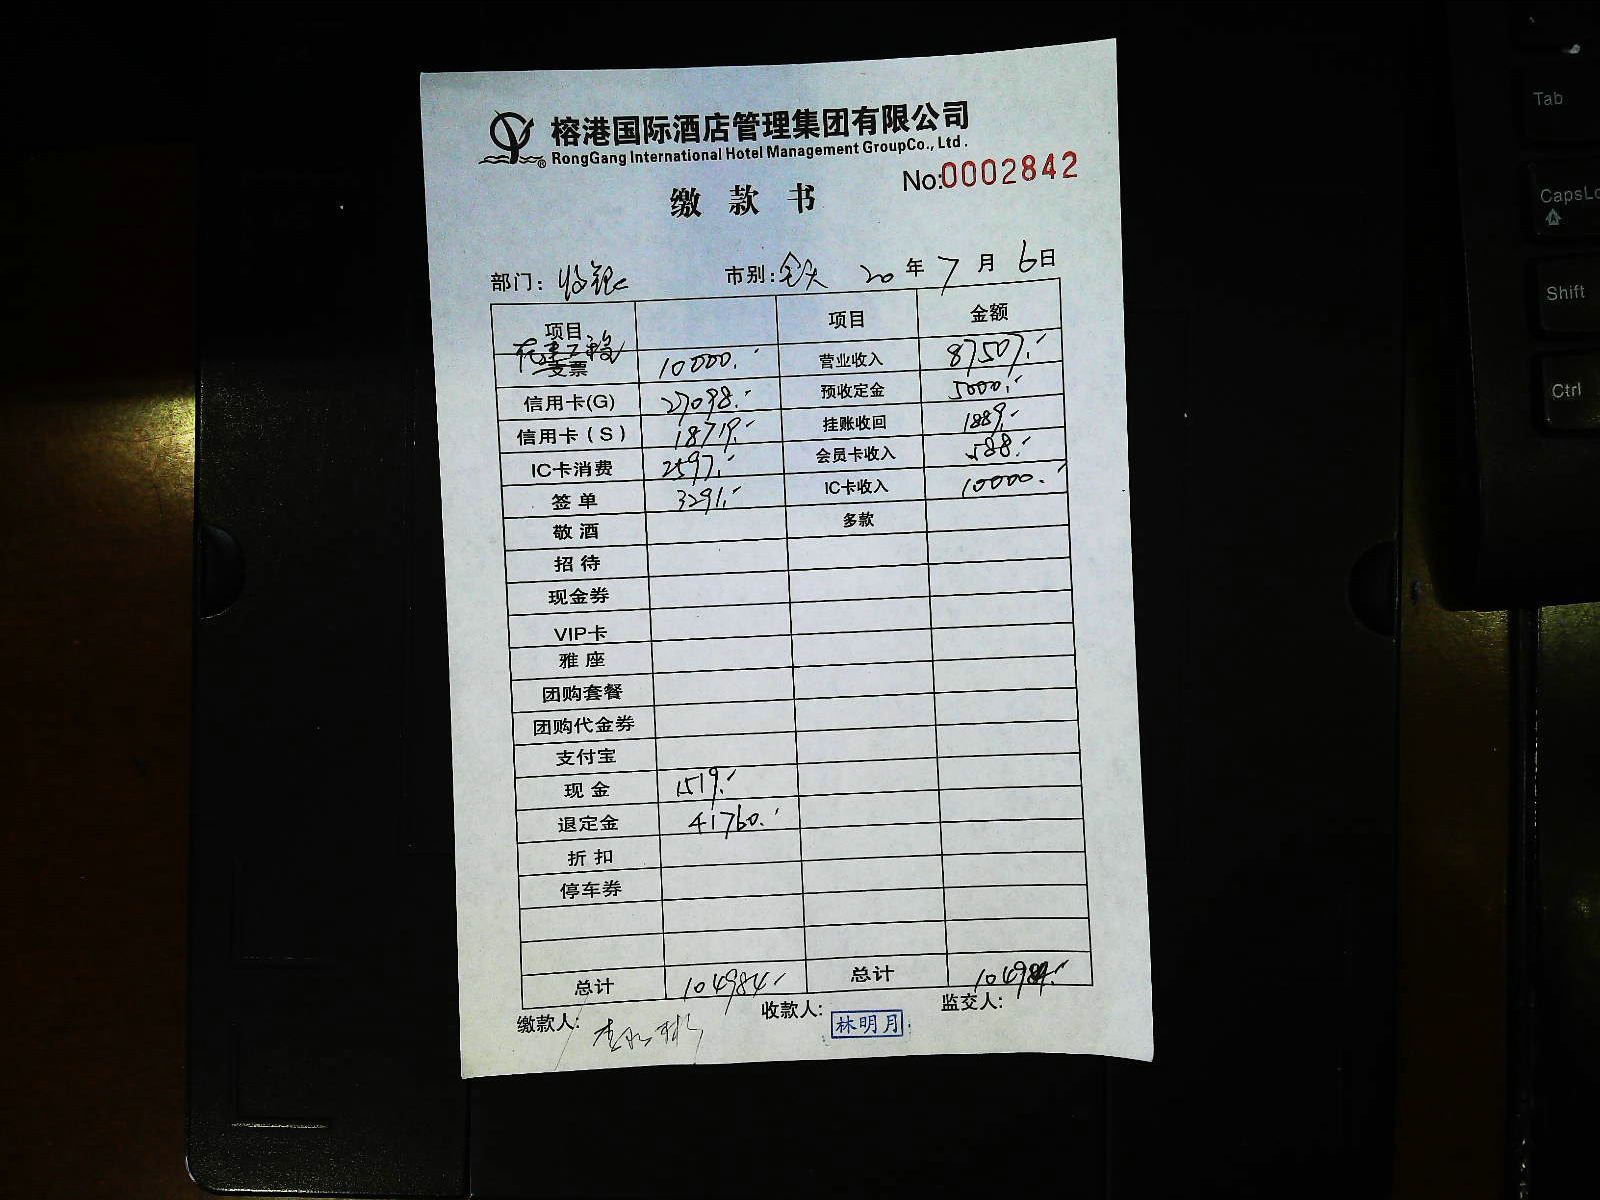 榕港国际酒店管理集团有限公司
RongGang International Hotel Management GroupCo., Ltd.
No:0002842
缴款书
部门: 收银 市别: 全天 20 年 7 月 6 日
项目 项目 金额
支票 10000.- 营业收入 87507.-
信用卡(G) 27098.- 预收定金 5000.-
信用卡(S) 18719.- 挂账收回 1889.-
IC卡消费 2597.- 会员卡收入 588.-
签单 3291.- IC卡收入 10000.-
敬酒 多款
招待
现金券
VIP卡
雅座
团购套餐
团购代金券
支付宝
现金 1519.-
退定金 41760.-
折扣
停车券
总计 104984.- 总计 104984.-
缴款人: 收款人: 林明月 监交人:
Tab
CapsLo
Shift
Ctrl